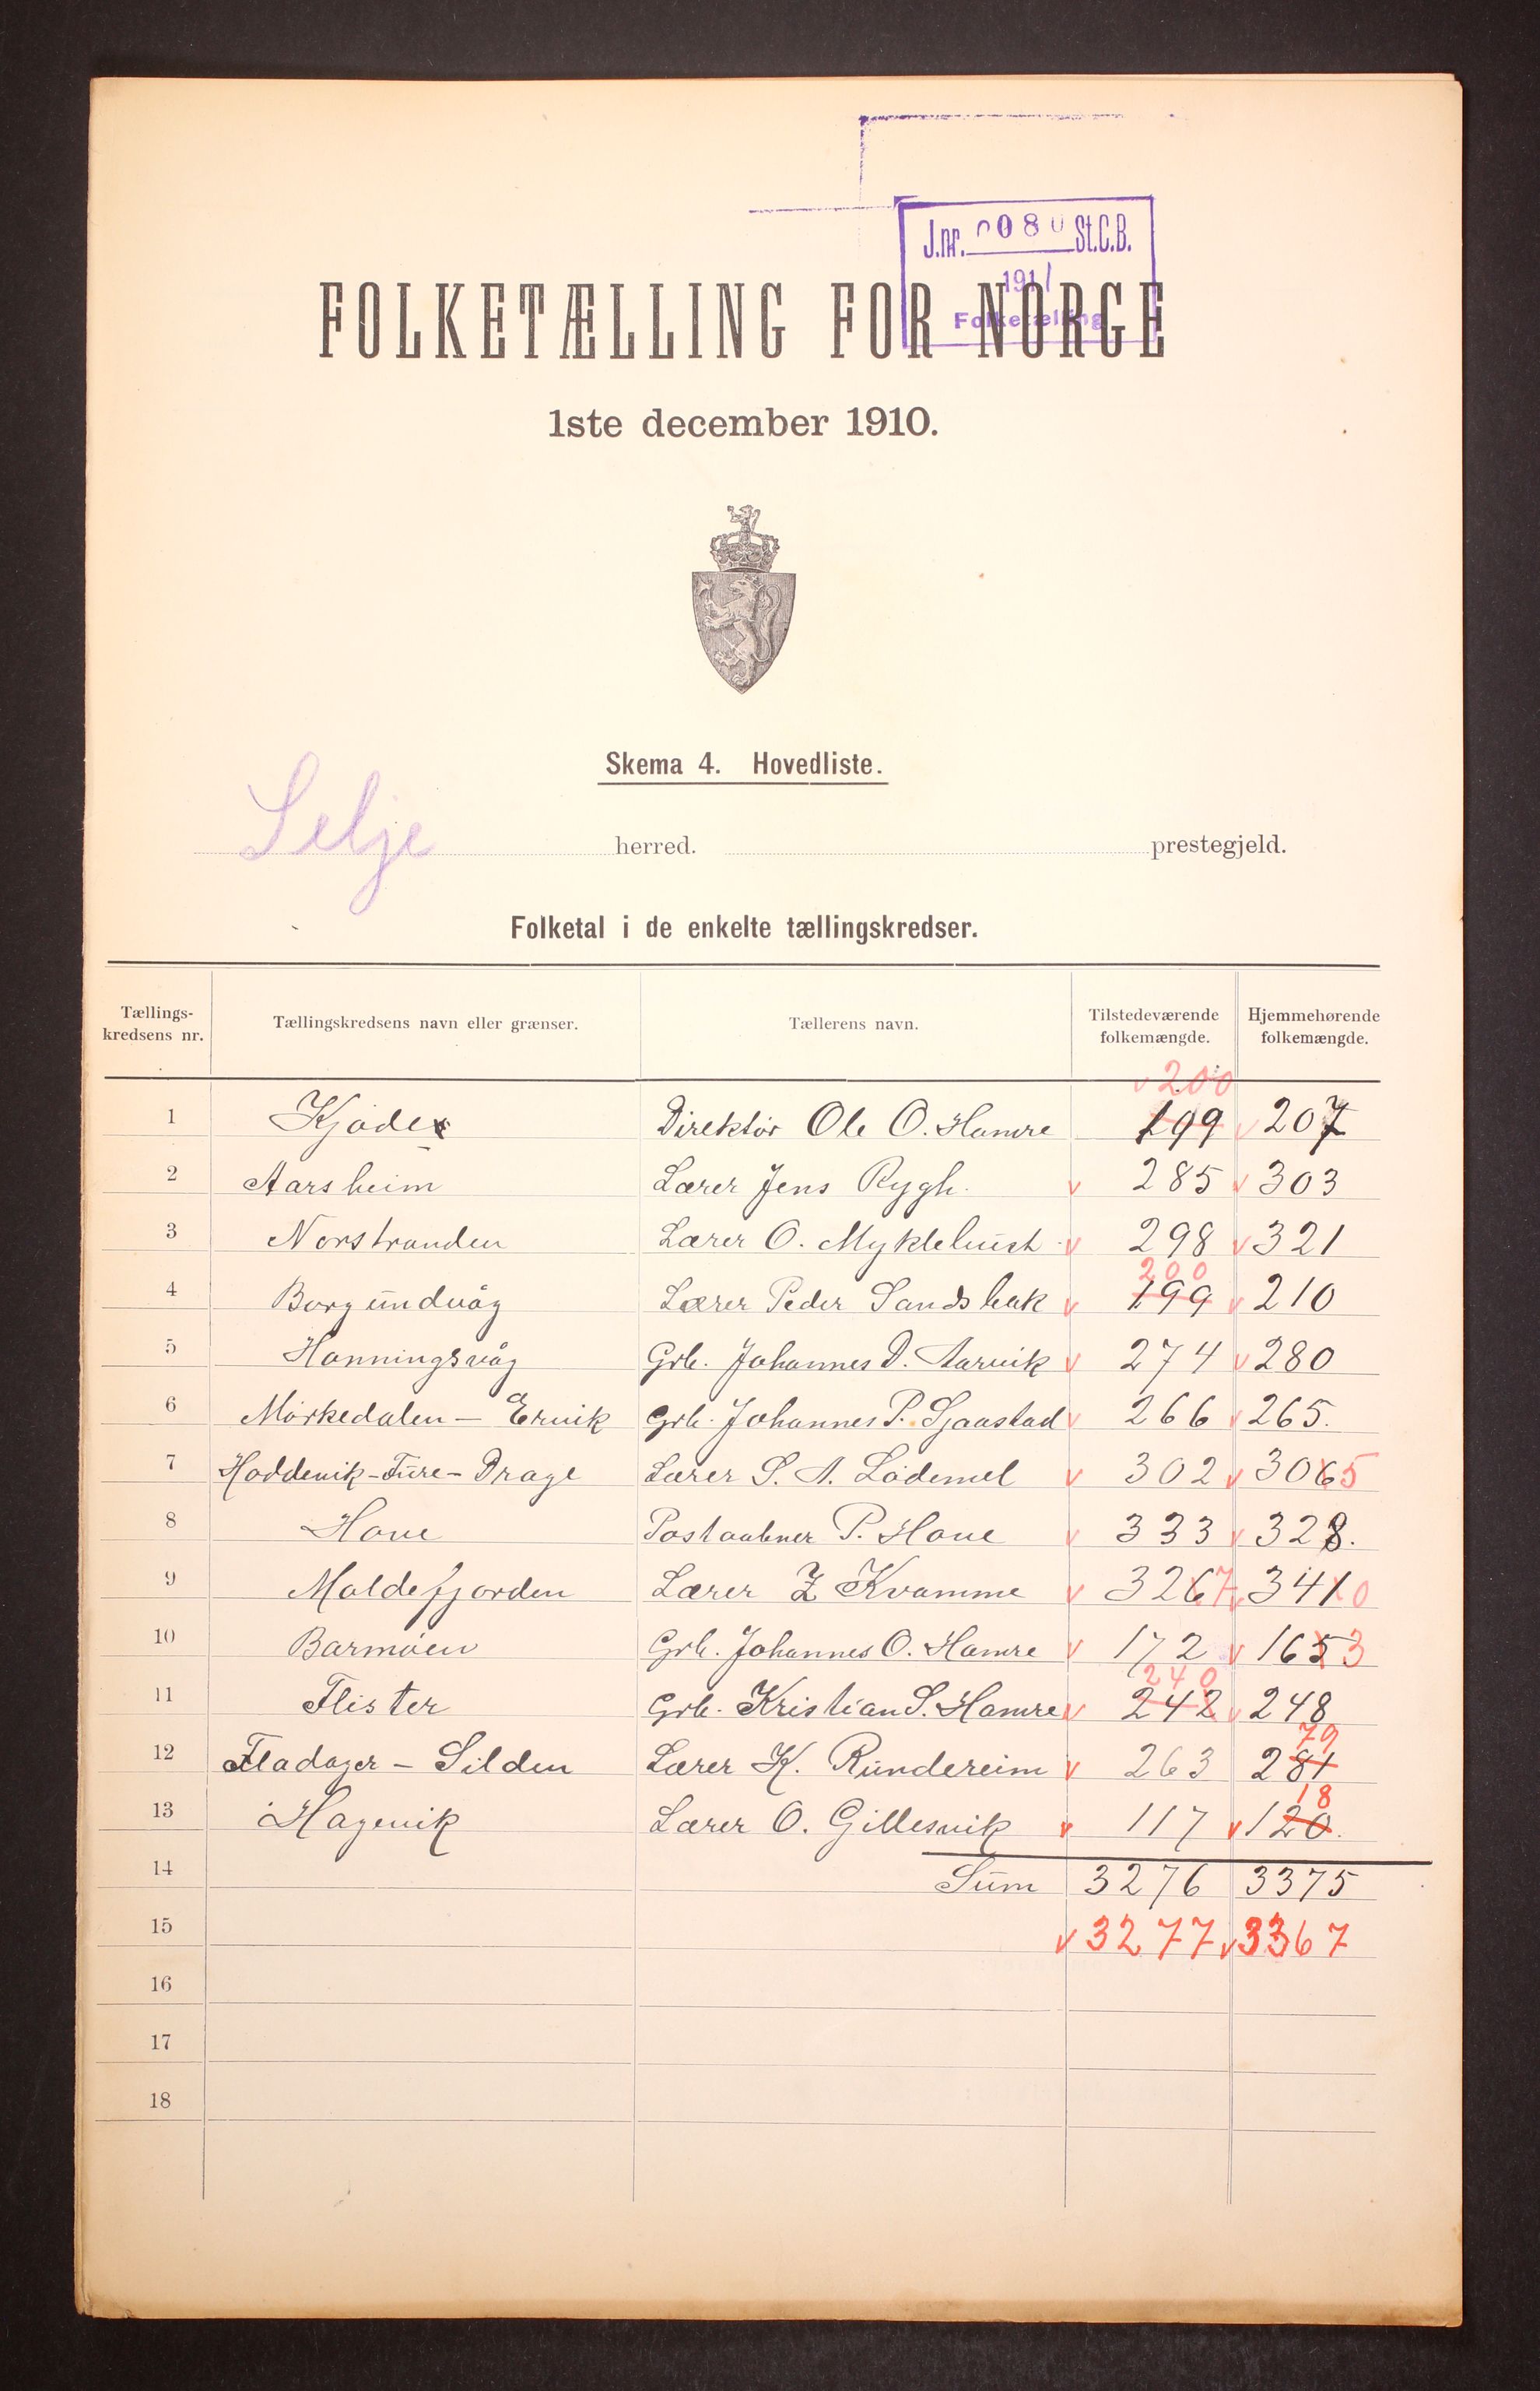 J.nr. 0080 St.C.B.
1911
Folketælling
FOLKETÆLLING FOR NORGE
1ste december 1910.
Skema 4. Hovedliste.
Selje herred. prestegjeld.
Folketal i de enkelte tællingskredser.
Tællings-kredsens nr. Tællingskredsens navn eller grænser. Tællerens navn. Tilstedeværende folkemængde. Hjemmehørende folkemængde.
v 200
1 Kjøde Direktör Ole O. Hamre 199 v 207
2 Aarsheim Lærer Jens Rygh. v 285 v 303
3 Norstranden Lærer O. Myklebust v 298 v 321
200
4 Borgundvåg Lærer Peder Sandsbak v 199 v 210
5 Honningsvåg Grb. Johannes D. Aarvik v 274 v 280
6 Mörkedalen - Ervik Grb. Johannes P. Sjaastad v 266 v 265.
7 Hoddevik - Fure - Drage Lærer S. A. Lödemel v 302 v 306 5
8 Hove Postaabner P. Hove v 333 v 328.
9 Moldefjorden Lærer Z Kvamme v 326 7 v 341 0
10 Barmöen Grb. Johannes O. Hamre v 172 v 165 3
240
11 Flister Grb. Kristian S. Hamre v 242 v 248
79
12 Fladager - Silden Lærer K. Rundereim v 263 281
18
13 Hagevik Lærer O. Gillesvik v 117 v 120.
14 Sum 3276 3375
15 v 3277 v 3367
16
17
18